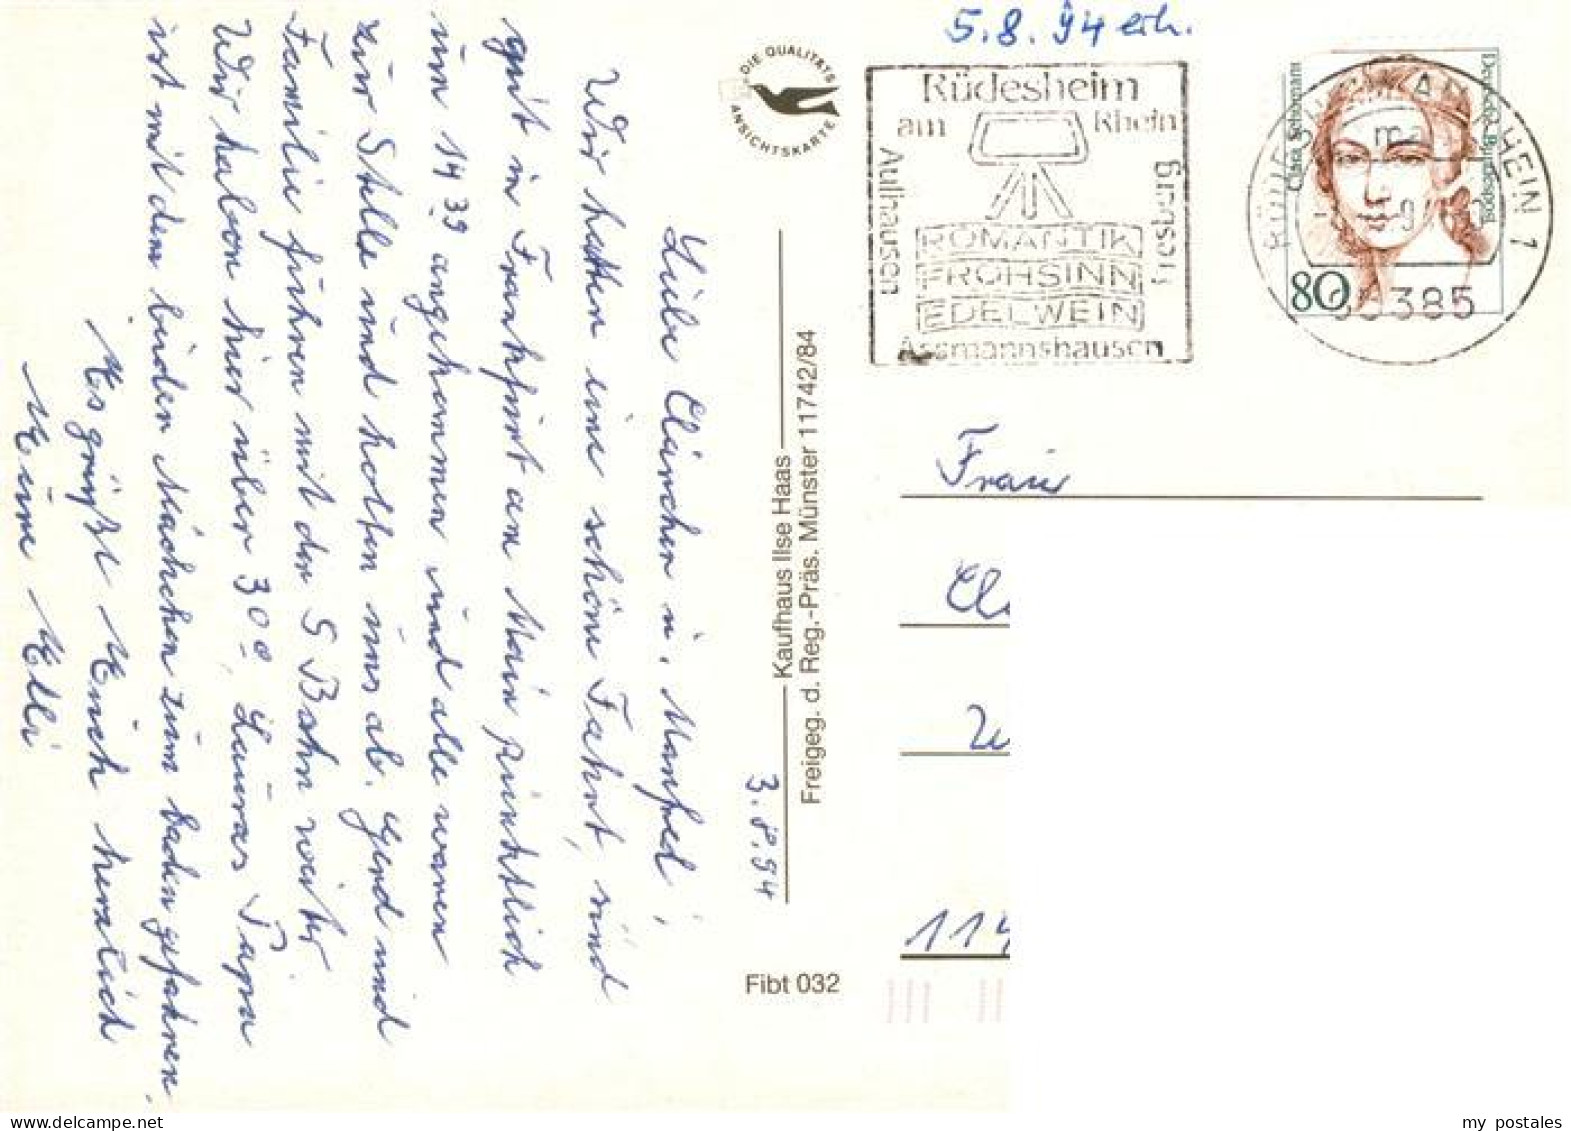 Liebe Clärchen u. Manfred,
Wir hatten eine schöne Fahrt, und
gut in Frankfurt am Main pünktlich
um 14 39 angekommen und alle waren
zur Stelle und holten uns ab. Gerd und
Familie fuhren mit der S Bahn weiter.
Wir haben hier über 30°. Lauras Papa
ist mit den beiden Mädchen zum baden gefahren.
Es grüßt Euch herzlich
Eure Elli
3.8.94
DIE QUALITÄTS
ANSICHTSKARTE
Kaufhaus Ilse Haas
Freigeg. d. Reg.-Präs. Münster 11742/84
Fibt 032
5.8.94 erh.
Rüdesheim
am Rhein
Aulhausen
Presberg
ROMANTIK
FROHSINN
EDELWEIN
Assmannshausen
Clara Schumann
Deutsche Bundespost
80
RÜDESHEIM AM RHEIN 1
65385
Frau
114
my postales